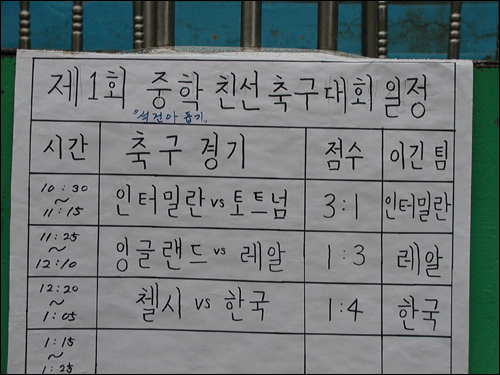 제1회 중학 친선 축구대회 일정
시간 축구 경기 점수 이긴 팀
10:30 ~ 11:15 인터밀란 vs 토트넘 3:1 인터밀란
11:25 ~ 12:10 잉글랜드 vs 레알 1:3 레알
12:20 ~ 1:05 첼시 vs 한국 1:4 한국
1:15 ~ 1:25